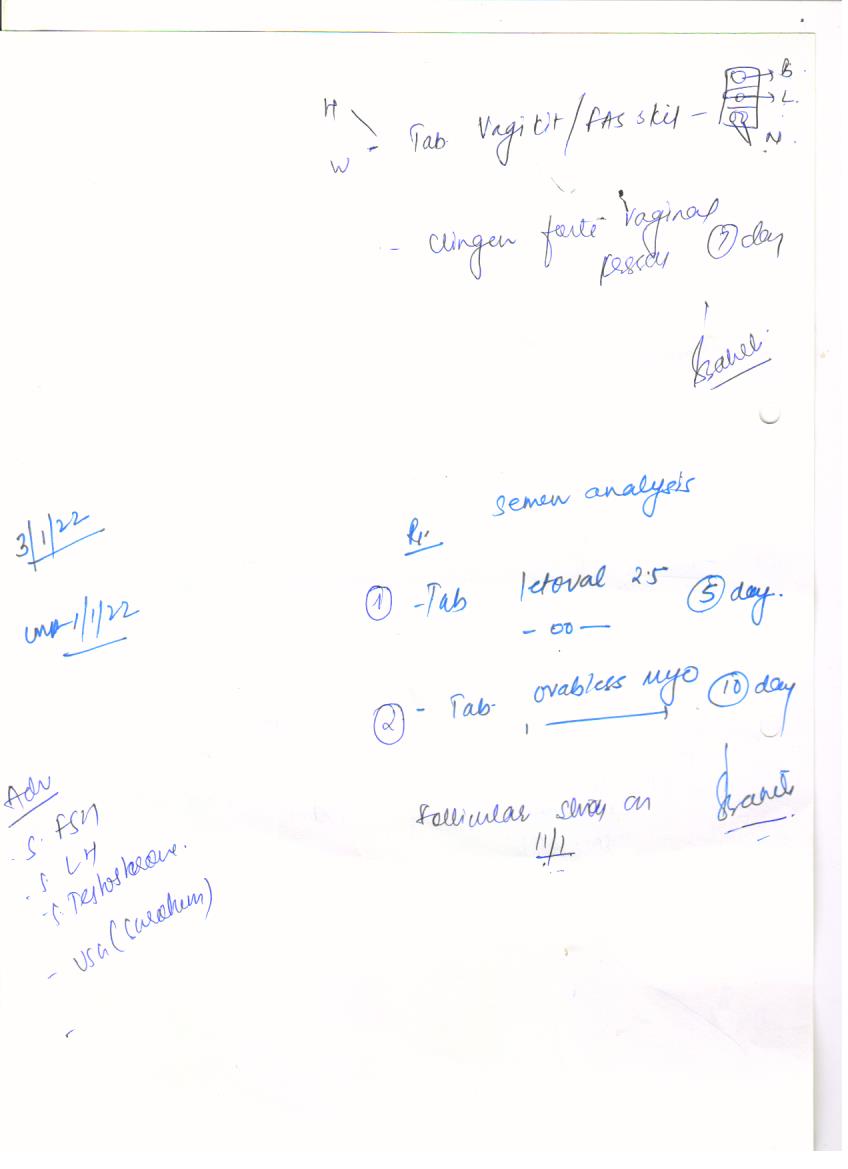 H
W
- Tab Vagikit/FAS skit -
B
L.
N.
- Clingen forte vaginal
pessary 7 day
3/1/22
semen analysis
Rx.
① - Tab letoval 2.5 ⑤ day.
- 00 -
LMP-1/1/22
② - Tab ovabless myo ⑩ day
Adv
Follicular study on
11/1
- S. FSH
- S. LH
- S. Testosterone.
- USG (